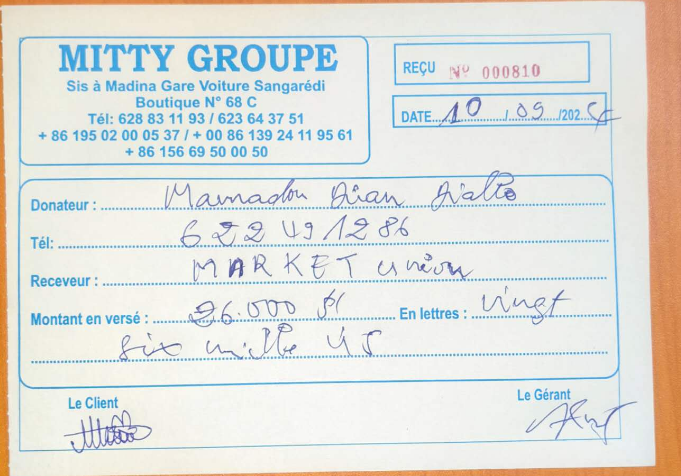 MITTY GROUPE
Sis à Madina Gare Voiture Sangarédi
Boutique N° 68 C
Tél: 628 83 11 93 / 623 64 37 51
+ 86 195 02 00 05 37 / + 00 86 139 24 11 95 61
+ 86 156 69 50 00 50
REÇU Nº 000810
DATE 10 / 09 /202
Donateur : Mamadou Dian Diallo
Tél: 622 49 12 86
Receveur : MARKET union
Montant en versé : 26.000 $ En lettres : Vingt
six mille US
Le Client
Le Gérant